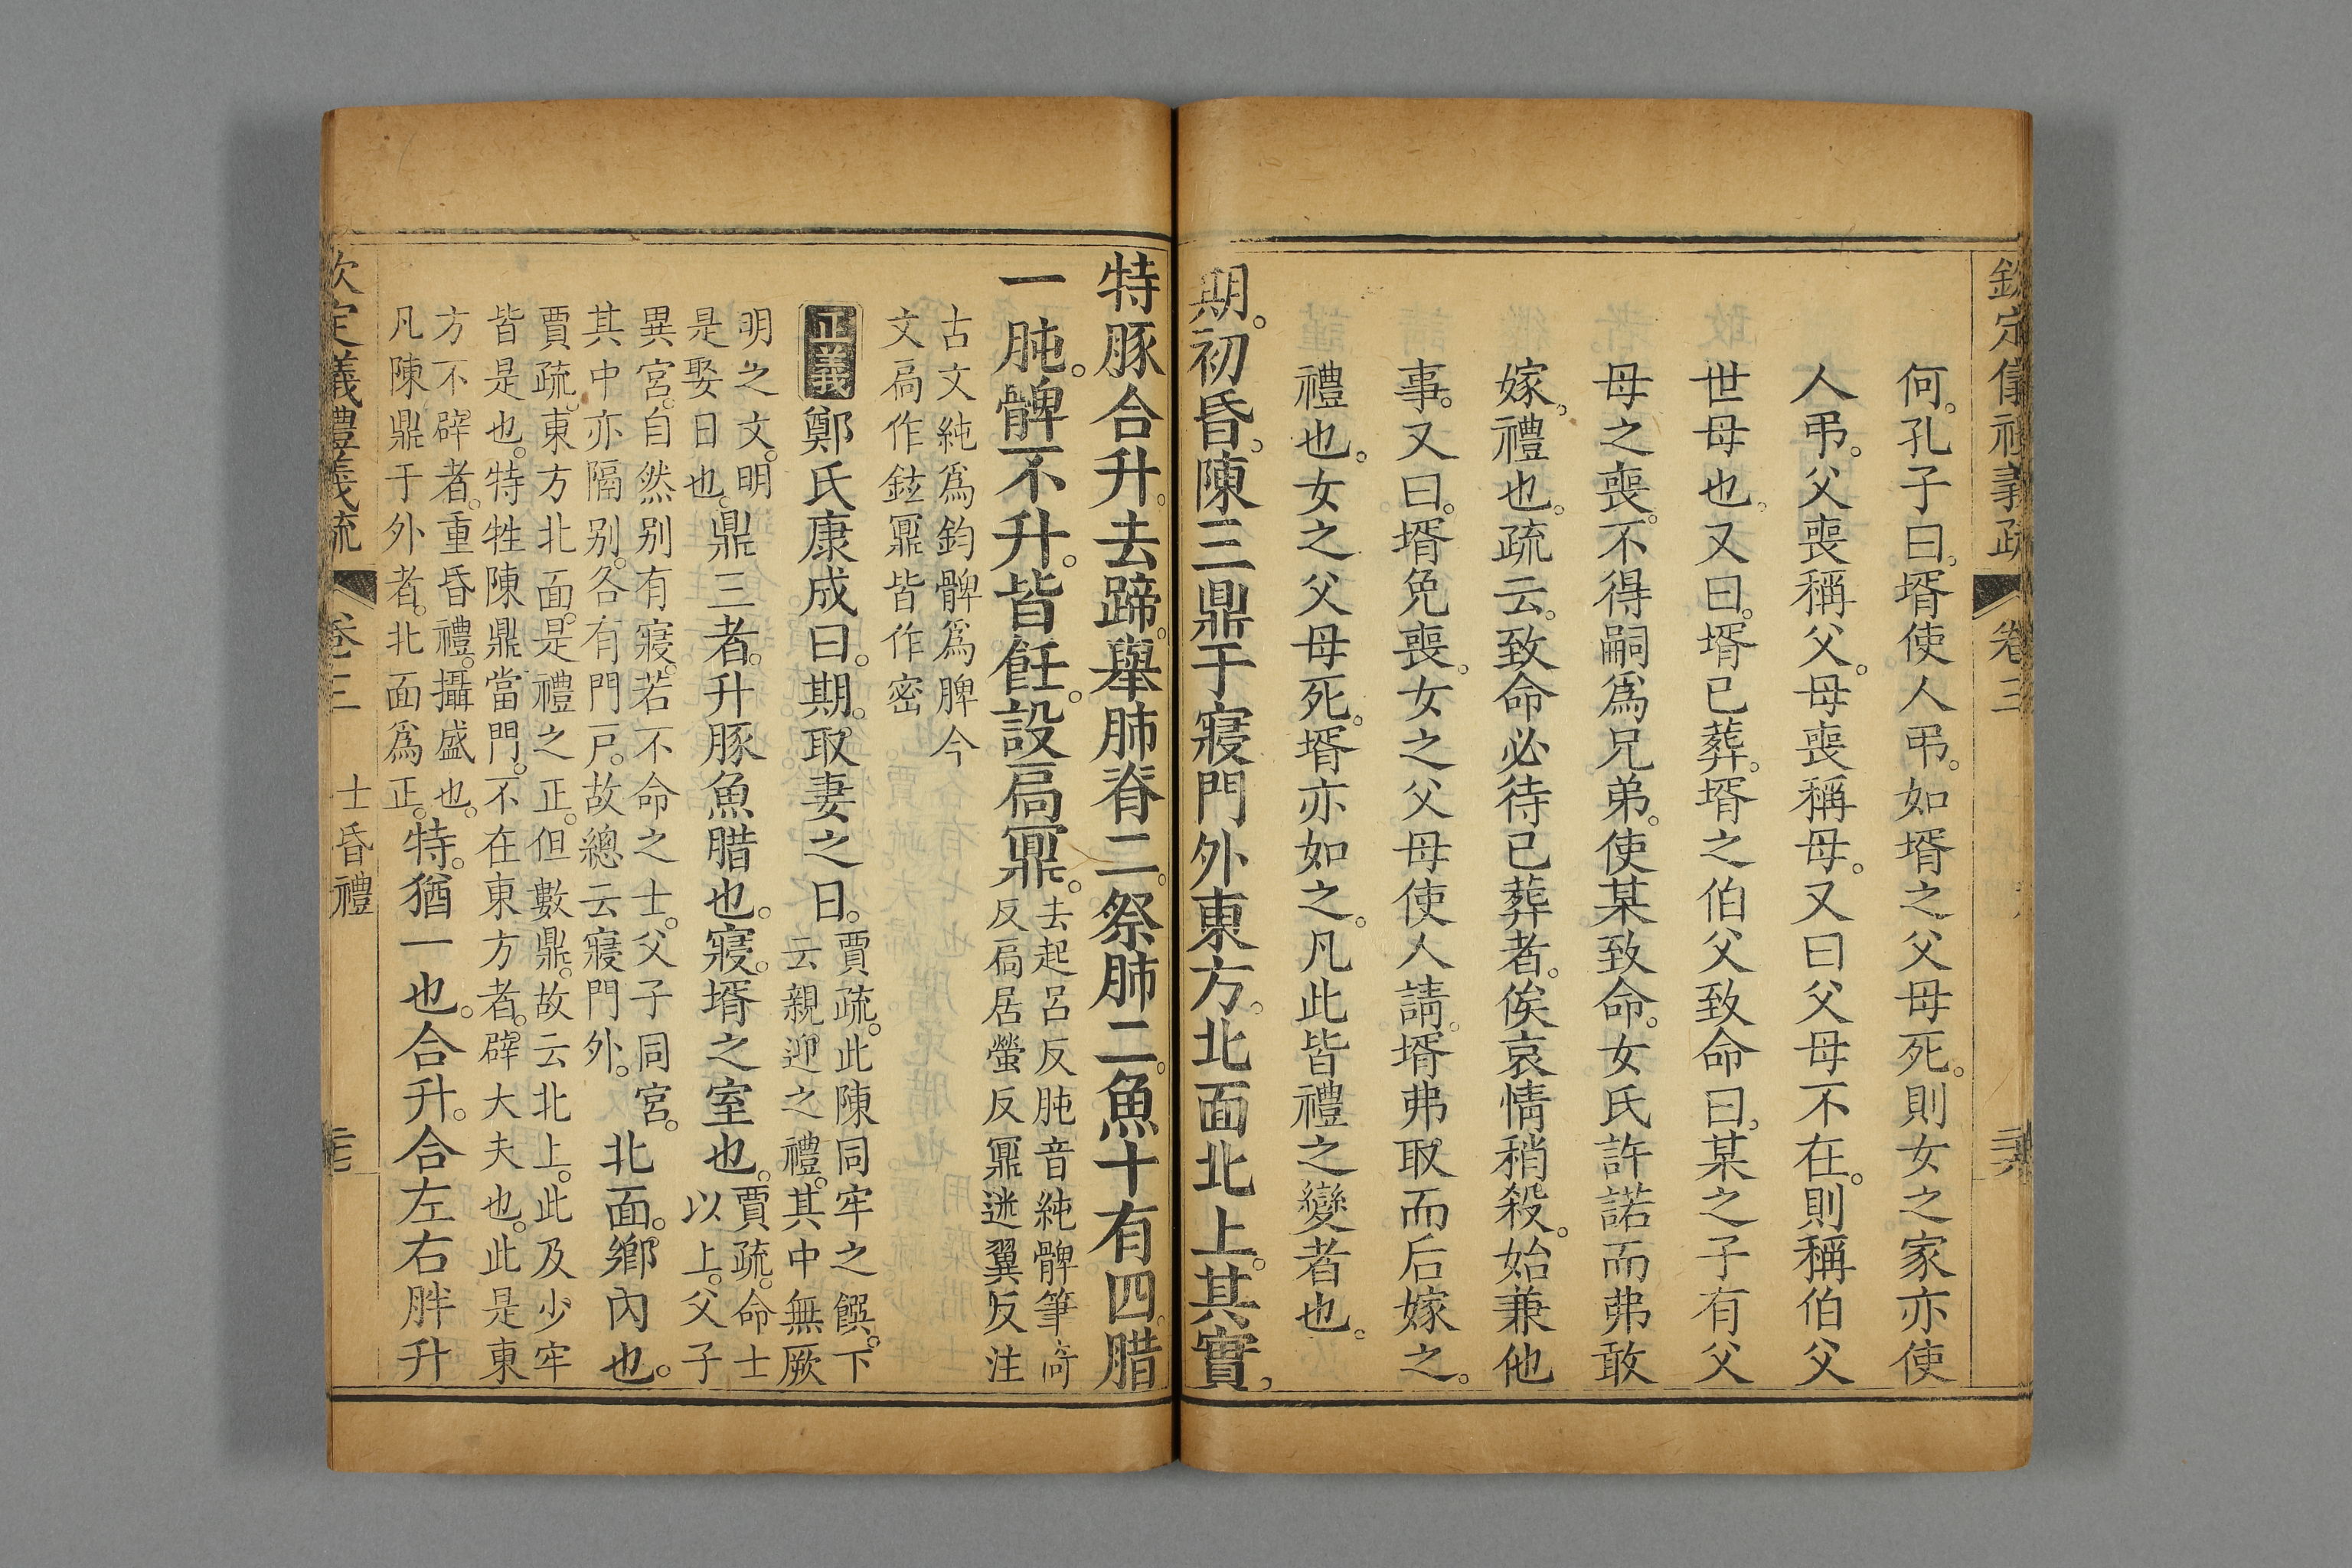 欽定儀禮義疏 卷三
何。孔子曰。壻使人弔。如壻之父母死。則女之家亦使
人弔。父喪稱父。母喪稱母。又曰父母不在。則稱伯父
世母也。又曰。壻已葬。壻之伯父致命曰。某之子有父
母之喪。不得嗣爲兄弟。使某致命。女氏許諾而弗敢
嫁。禮也。疏云。致命必待已葬者。俟哀情稍殺。始兼他
事。又曰。壻免喪。女之父母使人請。壻弗取而后嫁之。
禮也。女之父母死。壻亦如之。凡此皆禮之變者也。
期。初昏。陳三鼎于寢門外東方。北面北上。其實
特豚合升。去蹄。舉肺脊二。祭肺二。魚十有四。腊
一肫。髀不升。皆飪。設扃鼏。
去起呂反肫音純髀筆奇
反扃居螢反鼏迷翼反注
古文純爲鈞髀爲脾今
文扃作鉉鼏皆作密
正義鄭氏康成曰。期。取妻之日。
賈疏。此陳同牢之饌。下
云親迎之禮。其中無厥
明之文。明
是娶日也。
鼎三者。升豚魚腊也。寢。壻之室也。
賈疏。命士
以上。父子
異宮。自然别有寢。若不命之士。父子同宮。
其中亦隔别。各有門戸。故總云寢門外。
北面。鄉內也。
賈疏。東方北面。是禮之正。但數鼎。故云北上。此及少牢
皆是也。特牲陳鼎當門。不在東方者。辟大夫也。此是東
方不辟者。重昏禮。攝盛也。
凡陳鼎于外者。北面爲正。
特。猶一也。合升。合左右胖升
欽定儀禮義疏 卷三 士昏禮